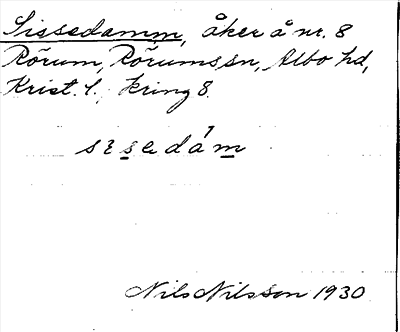 Sissedamm, åker å nr. 8
Rörum, Rörums sn, Albo hd,
Krist. l., kring 8.
sɪsedám
Nils Nilsson 1930